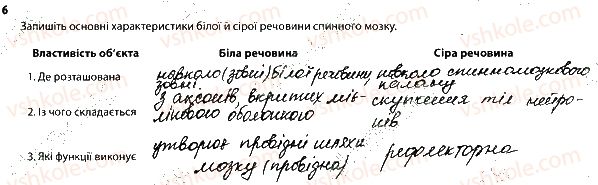 6
Запишіть основні характеристики білої й сірої речовини спинного мозку.
Властивість об'єкта Біла речовина Сіра речовина
1. Де розташована навколо (зовні) білої речовини, навколо спинномозкового
зовні каналу
2. Із чого складається з аксонів, вкритих міє- скупчення тіл нейро-
ліновою оболонкою нів
3. Які функції виконує утворює провідні шляхи рефлекторна
мозку (провідна)
vshkole.com